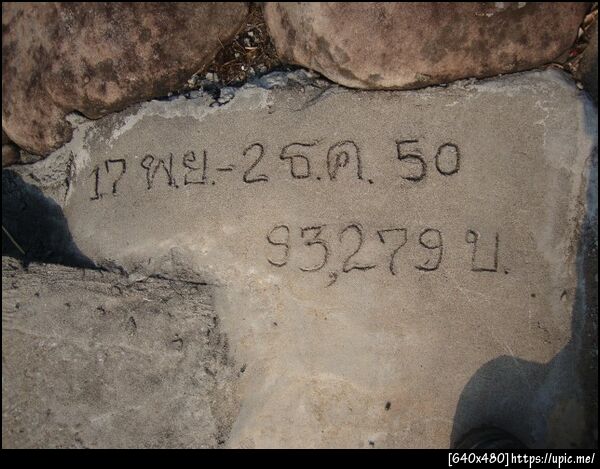 17 พ.ย.-2 ธ.ค. 50
93,279 บ.
[640x480]https://upic.me/